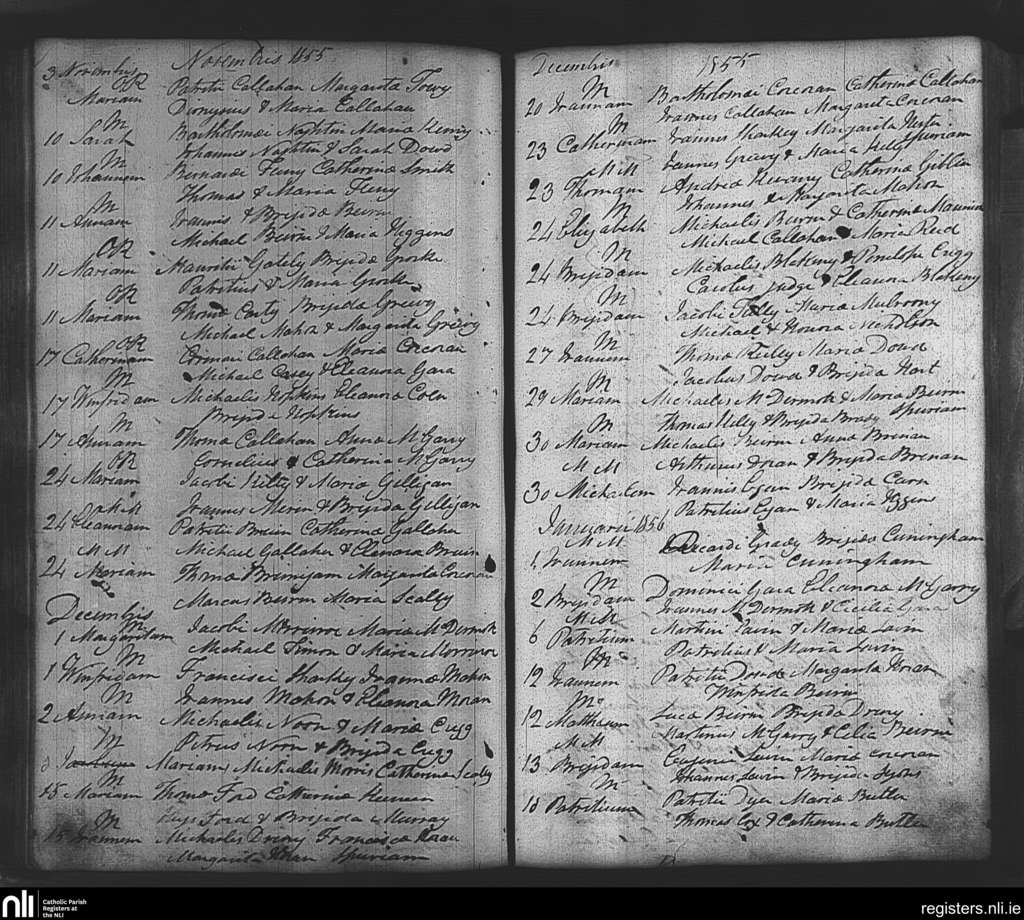 Novembris 1855
3 Novembris
OR
Mariam Patritii Callahan Margarita
Dionysius & Maria Callahan
M
10 Sarah Bartholomaei Naghtin Maria Henry
Johannes Naghtin & Sarah Dowd
M
10 Johannem Bernardi Feeny Catherinae Smith
Thomas & Maria Feeny
M
11 Annam Ioannis & Brijidae Beirn
Michael Beirn & Maria Higgens
OR
11 Mariam Mauritii Gately Brijidae
Patritius & Maria
OR
11 Mariam Thomae Carty Brijida Greevy
Michael Mahon & Margarita Greevy
OR
17 Catherinam Callahan Maria Corcoran
Michael Casey & Eleanora Gara
M
17 Winifridam Michaelis Hopkins Eleanora
Brijida Hopkins
M
17 Annam Thomae Callahan Anna McGarry
Cornelius & Catherina McGarry
OR
24 Mariam Jacobi Kilty & Maria Gilligan
Ioannes & Brijida Gilligan
M M
24 Eleanoram Patritii Bruin Catherina Gallaher
Michael Gallaher & Eleanora Bruin
M M
24 Mariam Thomae Margarita Corcoran
Marcus Beirn Maria Scally
Decembris
M
1 Margaritam Jacobi Morrisroe Maria McDermott
Michael Simon & Maria Morrisroe
M
1 Winfridam Francisci Sharkey Joannae Mahon
Ioannes Mahon & Eleanora Moran
M
2 Annam Michaelis Noon & Maria Cregg
Petrus Noon & Brijida Cregg
M
Mariam Michaelis Morris Catherina Scally
M
15 Mariam Thomae Ford Catherinae
Ford & Brijida Murray
M
15 Ioannem Michaelis Drury Francisca
Margarita Spuriam
Decembris 1855
M
20 Ioannam Bartholomaei Corcoran Catherina Callahan
Ioannes Callahan Margarita Corcoran
M
23 Catherinam Ioannes Sharkey Margarita
Spuriam
Ioannes Greevy & Maria Kelly
M M
23 Thomam Andrea Catherina Giblin
Johannes & Margarita Mahon
M
24 Elizabeth Michaelis Beirn & Catherina
Michael Callahan & Maria Reid
M
24 Brijidam Michaelis Blakeny & Penelope Cregg
Carolus Judge & Eleanora Blakeny
M
24 Brijidam Jacobi Maria Mulrony
Michael & Honora Nicholson
M
27 Ioannem Thomae Kielly Maria Dowd
Jacobus Dowd & Brijida Hart
M
29 Mariam Michaelis McDermott & Maria Beirn
Spuriam
Thomas & Brijida Brady
M
30 Mariam Michaelis Beirn Anna Brenan
Arthurus Doran & Brijida Brenan
M M
30 Michaelem Ioannis Egan Brijida
Patritius Egan & Maria
Januarii 1856
M M
1 Ioannem Ricardi Grady Brijidae Cuningham
Maria Cuningham
M
2 Brijidam Dominici Gara Eleanora McGarry
Ioannes McDermott & Cecilia Gara
M M
6 Patritium Martini Lavin & Maria Lavin
Patritius & Maria Lavin
M
12 Ioannem Patritii Margarita
Winfrida Beirn
M
12 Mattheum Luca Beirn Brijida Drury
Martinus McGarry & Celia Beirn
M M
13 Brijidam Eugenii Lavin Maria Corcoran
Johannes Lavin & Brijida Lyons
M
18 Patritium Patritii Dyer Maria Butler
Thomas Cox & Catherina Butler
nli
Catholic Parish
Registers at
the NLI
registers.nli.ie